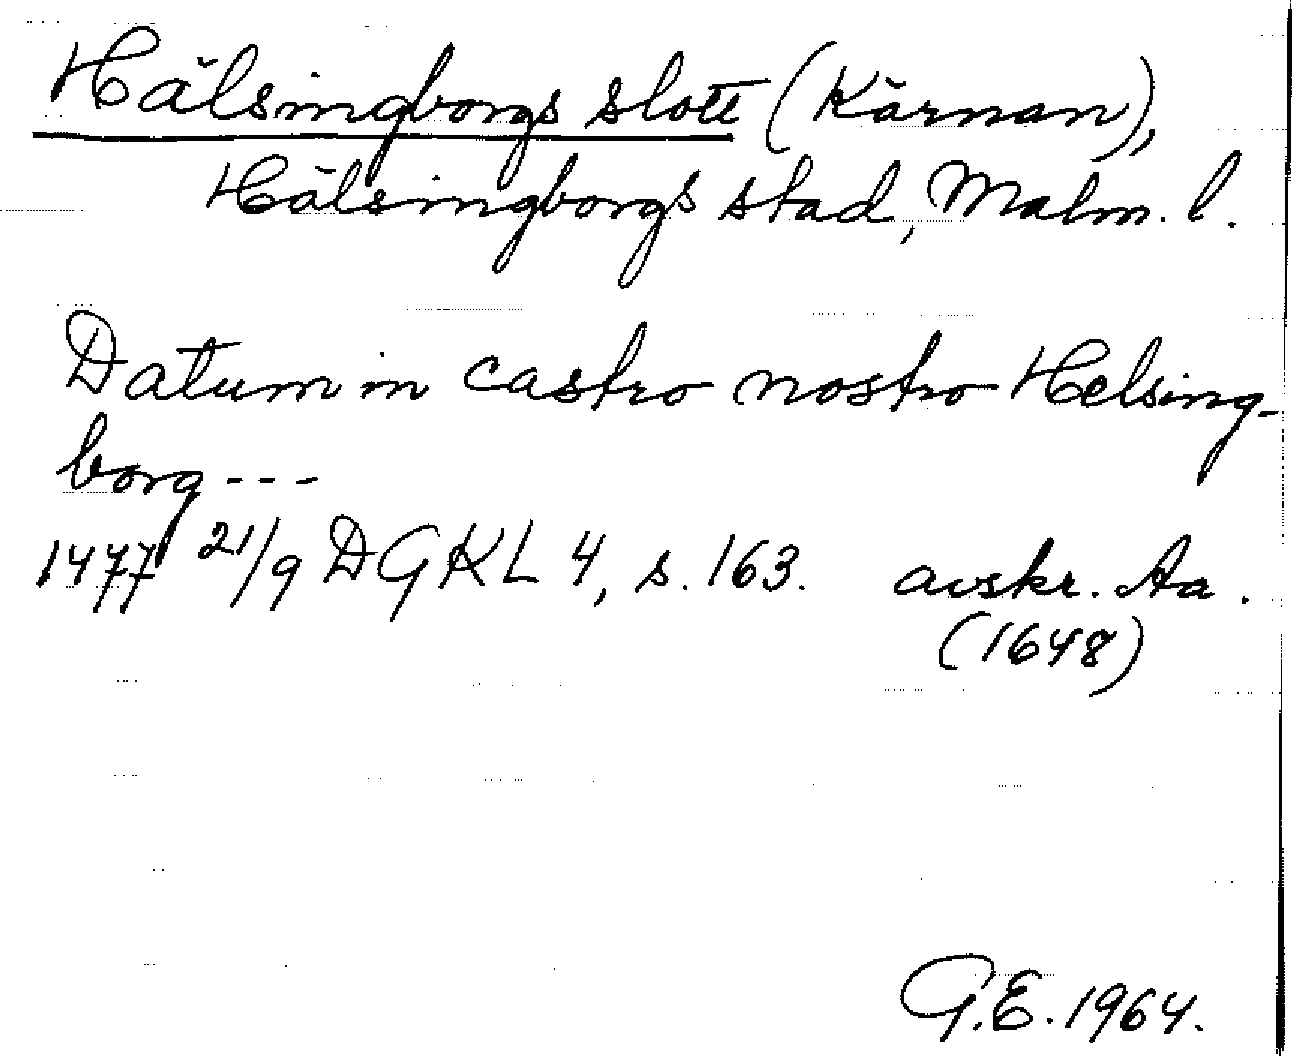 Hälsingborgs slott (Kärnan),
Hälsingborgs stad, Malm. l.
Datum in castro nostro Helsing-
borg ---
1477 21/9 DGKL 4, s. 163. avskr. Aa.
(1648)
G.E. 1964.